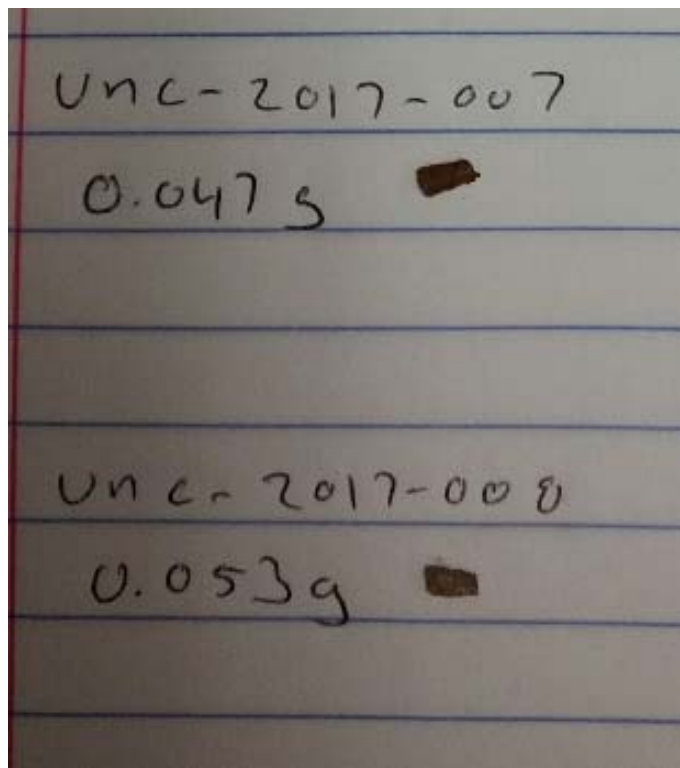 Unc-2017-007
0.047g
Unc-2017-008
0.053g